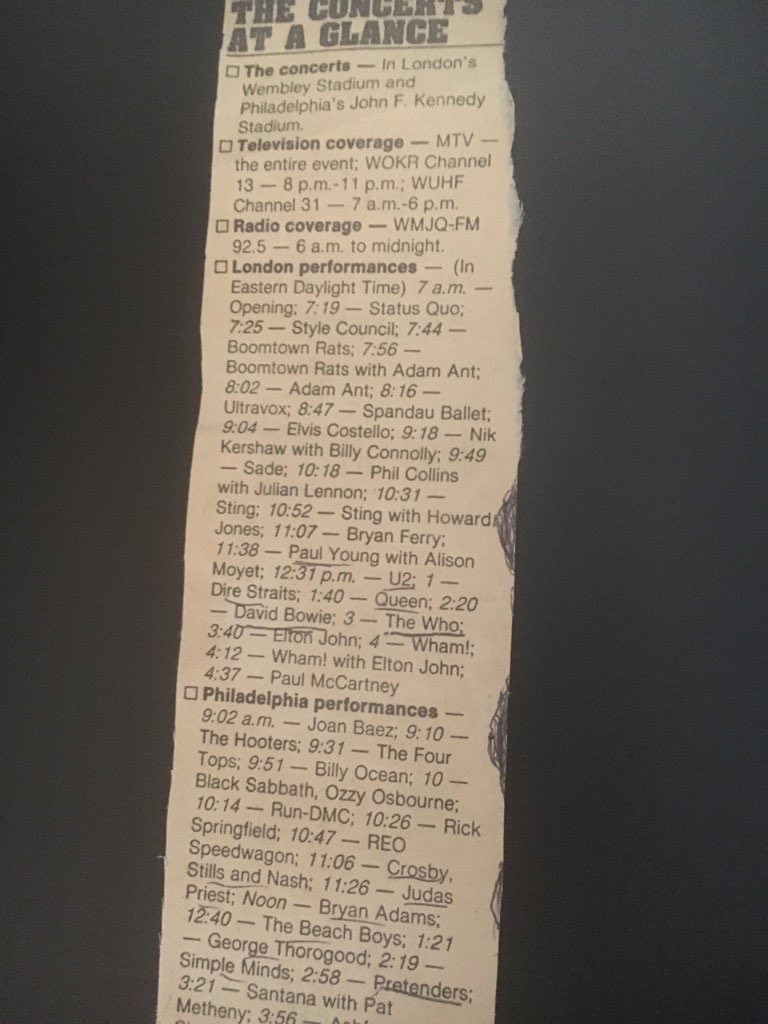 THE CONCERTS
AT A GLANCE
☐ The concerts — In London's
Wembley Stadium and
Philadelphia's John F. Kennedy
Stadium.
☐ Television coverage — MTV —
the entire event; WOKR Channel
13 — 8 p.m.-11 p.m.; WUHF
Channel 31 — 7 a.m.-6 p.m.
☐ Radio coverage — WMJQ-FM
92.5 — 6 a.m. to midnight.
☐ London performances — (In
Eastern Daylight Time) 7 a.m. —
Opening; 7:19 — Status Quo;
7:25 — Style Council; 7:44 —
Boomtown Rats; 7:56 —
Boomtown Rats with Adam Ant;
8:02 — Adam Ant; 8:16 —
Ultravox; 8:47 — Spandau Ballet;
9:04 — Elvis Costello; 9:18 — Nik
Kershaw with Billy Connolly; 9:49
— Sade; 10:18 — Phil Collins
with Julian Lennon; 10:31 —
Sting; 10:52 — Sting with Howard
Jones; 11:07 — Bryan Ferry;
11:38 — Paul Young with Alison
Moyet; 12:31 p.m. — U2; 1 —
Dire Straits; 1:40 — Queen; 2:20
— David Bowie; 3 — The Who;
3:40 — Elton John; 4 — Wham!;
4:12 — Wham! with Elton John;
4:37 — Paul McCartney
☐ Philadelphia performances —
9:02 a.m. — Joan Baez; 9:10 —
The Hooters; 9:31 — The Four
Tops; 9:51 — Billy Ocean; 10 —
Black Sabbath, Ozzy Osbourne;
10:14 — Run-DMC; 10:26 — Rick
Springfield; 10:47 — REO
Speedwagon; 11:06 — Crosby,
Stills and Nash; 11:26 — Judas
Priest; Noon — Bryan Adams;
12:40 — The Beach Boys; 1:21
— George Thorogood; 2:19 —
Simple Minds; 2:58 — Pretenders;
3:21 — Santana with Pat
Metheny; 3:56 —